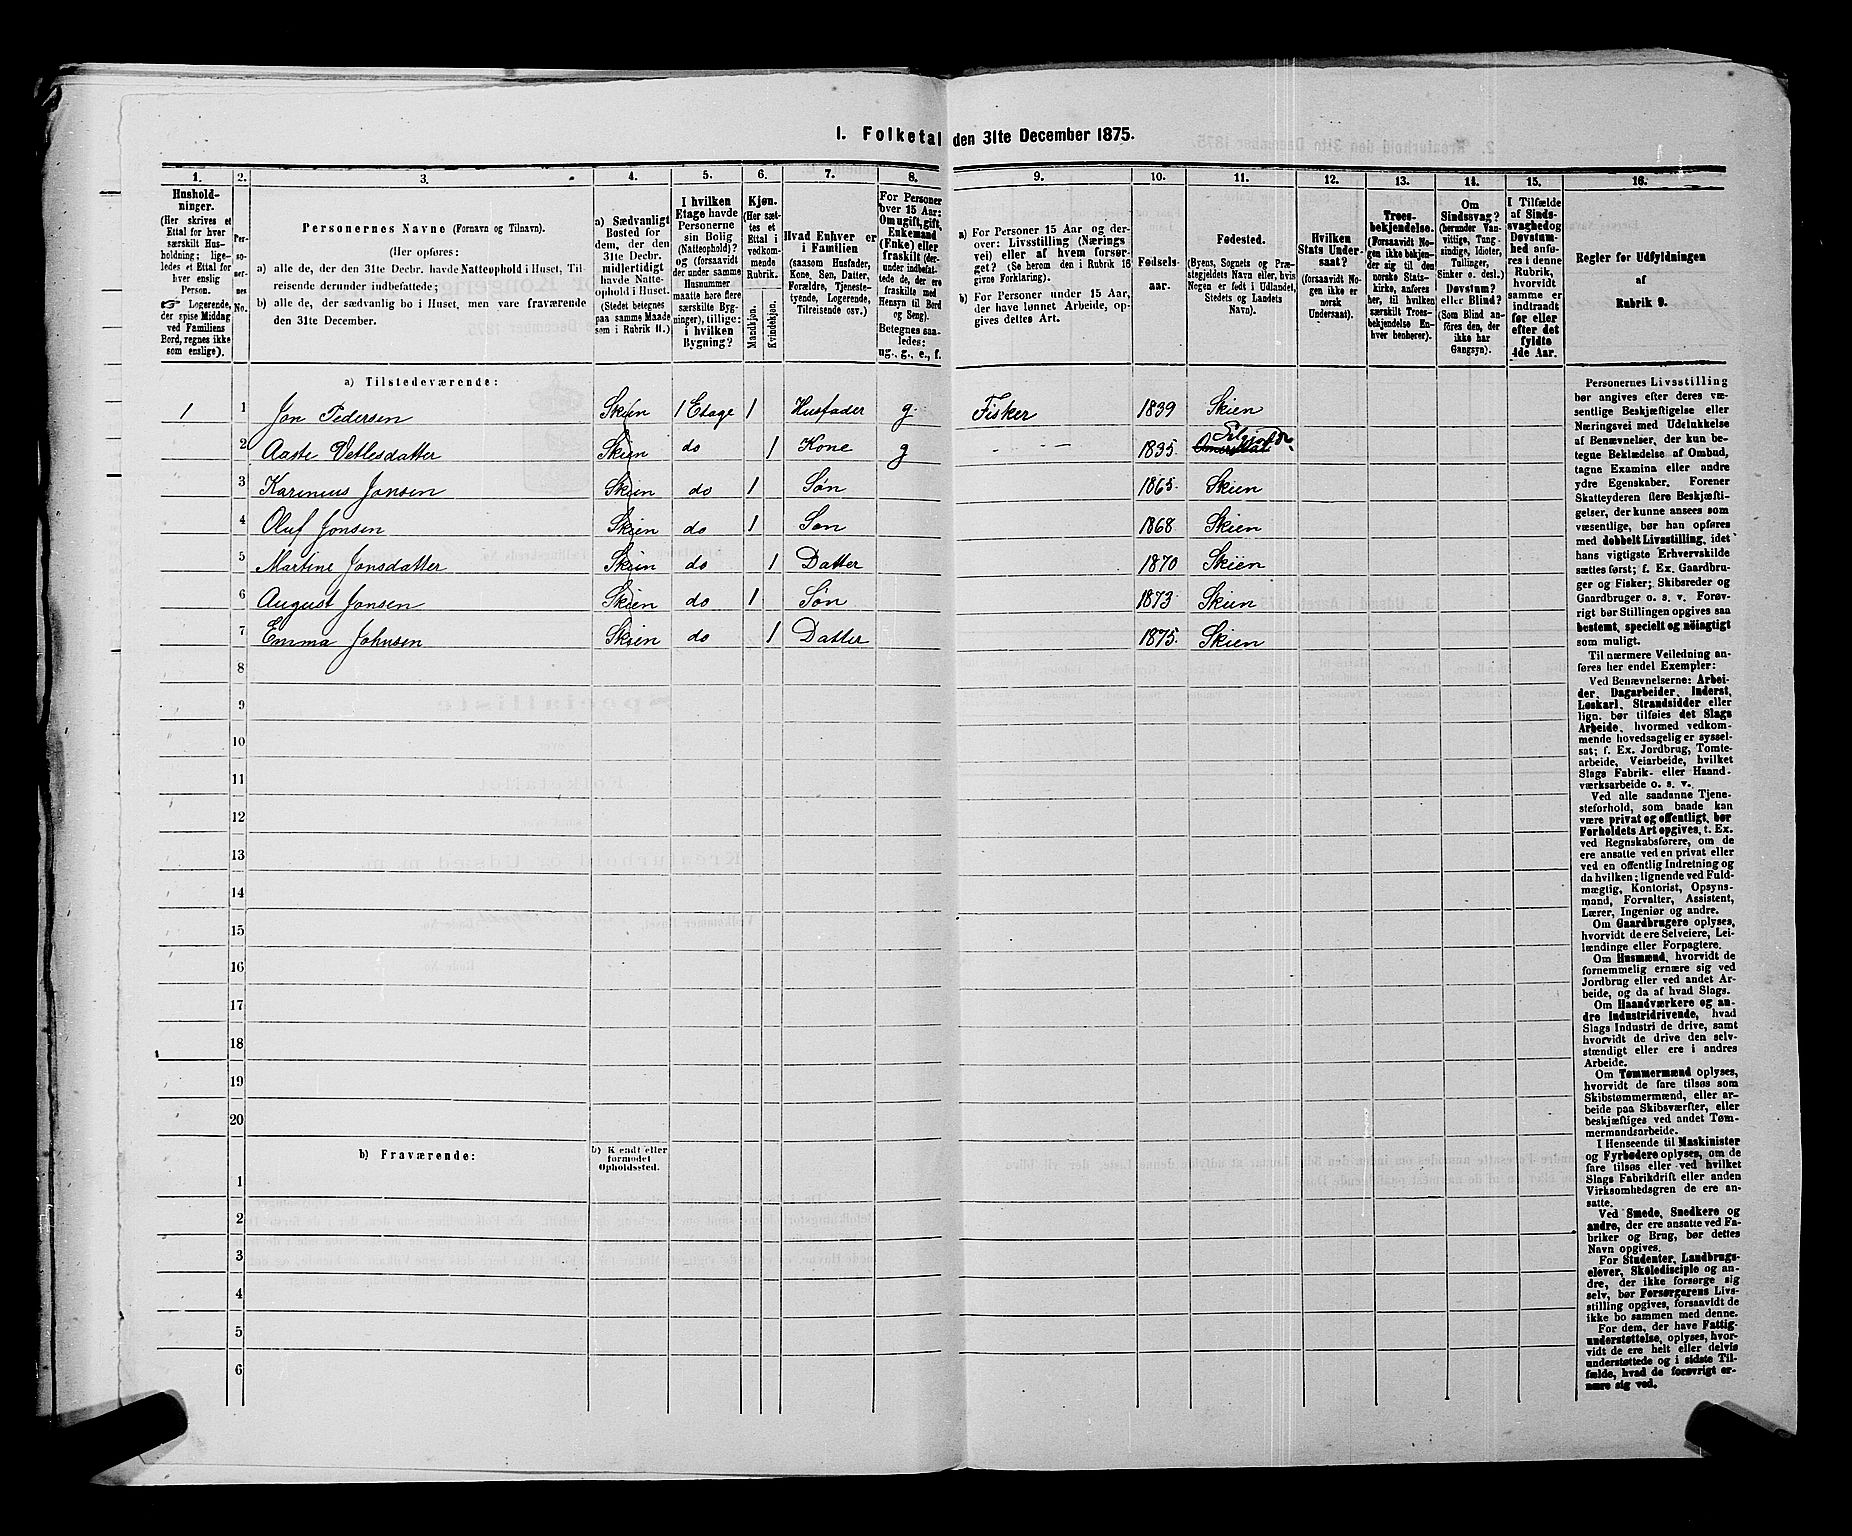 1. Folketal den 31te December 1875.
1. 2. 3. 4. 5. 6. 7. 8. 9. 10. 11. 12. 13. 14. 15. 16.
Hushold-
ninger.
(Her skrives et
Ettal for hver
særskilt Hus-
holdning; lige-
ledes et Ettal for
hver enslig
Person.
☞ Logerende,
der spise Middag
ved Familiens
Bord, regnes ikke
som enslige).
Per-
so-
ner-
nes
No.
Personernes Navne (Fornavn og Tilnavn).
(Her opføres:
a) alle de, der den 31te Decbr. havde Natteophold i Huset, Til-
reisende derunder indbefattede;
b) alle de, der sædvanlig bo i Huset, men vare fraværende
den 31te December.
a) Sædvanligt
Bosted for
dem, der den
31te Decbr.
midlertidigt
havde Natte-
ophold i Huset.
(Stedet betegnes
paa samme Maade
som i Rubrik 11.)
I hvilken
Etage havde
Personerne
sin Bolig
(Natteophold)?
og (forsaavidt
der under samme
Husnummer
maatte høre flere
særskilte Byg-
ninger), tillige:
i hvilken
Bygning?
Kjøn.
(Her sæt-
tes et
Ettal i
vedkom-
mende
Rubrik.
Mandkjøn.
Kvindekjøn.
Hvad Enhver er
i Familien
(saasom Husfader,
Kone, Søn, Datter,
Forældre, Tjeneste-
tyende, Logerende,
Tilreisende osv.)
For Personer
over 15 Aar:
Om ugift, gift,
Enkemand
(Enke) eller
fraskilt (der-
under indbefat-
tede de, der ere
fraskilte med
Hensyn til Bord
og Seng).
Betegnes saa-
ledes:
ug., g., e., f.
a) For Personer 15 Aar og der-
over: Livsstilling (Nærings
vei) eller af hvem forsør-
get? (Se herom den i Rubrik 16
givne Forklaring).
b) For Personer under 15 Aar,
der have lønnet Arbeide, op-
gives dettes Art.
Fødsels-
aar.
Fødested.
(Byens, Sognets og Præ-
stegjeldets Navn eller, hvis
Nogen er født i Udlandet,
Stedets og Landets
Navn).
Hvilken
Stats Under-
saat?
(forsaavidt No-
gen ikke er
norsk
Undersaat).
Troes-
bekjendelse.
(Forsaavidt No-
gen ikke bekjen-
der sig til den
norske Stats-
kirke, anføres
her, til hvilken
særskilt Troes-
bekjendelse En-
hver henhører).
Om
Sindssvag?
(herunder Van-
vittige, Tung-
sindige, Idioter,
Tullinger,
Sinker o. desl.)
Døvstum?
eller Blind?
(Som Blind an-
føres den, der
ikke har
Gangsyn).
I Tilfælde
af Sinds-
svaghed og
Døvstum-
hed anfø-
res i denne
Rubrik,
hvorvidt
samme er
indtraadt
før eller
efter det
fyldte
4de Aar.
Regler for Udfyldningen
af
Rubrik 9.
a) Tilstedeværende:
1 1 Jon Pedersen Skien 1 Etage 1 Husfader g. Fisker 1839 Skien
2 Aaste Vetlesdatter Skien do 1 Kone g – – 1835.
3 Karinius Jonsen Skien do 1 Søn 1865. Skien
4 Oluf Jonsen Skien do 1 Søn 1868 Skien
5 Martine Jonsdatter Skien do 1 Datter 1870 Skien
6 August Jonsen Skien do 1 Søn 1873. Skien
7 Emma Johnsen Skien do 1 Datter 1875. Skien
8
9
10
11
12
13
14
15
16
17
18
19
20
b) Fraværende:
b) Kjendt eller
formodet
Opholdssted.
1
2
3
4
5
6
Personernes Livsstilling
bør angives efter deres væ-
sentlige Beskjæftigelse eller
Næringsvei med Udelukkelse
af Benævnelser, der kun be-
tegne Beklædelse af Ombud,
tagne Examina eller andre
ydre Egenskaber. Forener
Skatteyderen flere Beskjæfti-
gelser, der kunne ansees som
væsentlige, bør han opføres
med dobbelt Livsstilling, idet
hans vigtigste Erhvervskilde
sættes først; f. Ex. Gaardbru-
ger og Fisker; Skibsreder og
Gaardbruger o. s. v. Forøv-
rigt bør Stillingen opgives saa
bestemt, specielt og nöiagtigt
som muligt.
Til nærmere Veiledning an-
føres her endel Exempler:
Ved Benævnelserne: Arbei-
der, Dagarbeider, Inderst,
Løskarl, Strandsidder eller
lign. bør tilføies det Slags
Arbeide, hvormed vedkom-
mende hovedsagelig er syssel-
sat; f. Ex. Jordbrug, Tomte-
arbeide, Veiarbeide, hvilket
Slags Fabrik- eller Haand-
værksarbeide o. s. v.
Ved alle saadanne Tjene-
steforhold, som baade kan
være privat og offentligt, bør
Forholdets Art opgives, t. Ex.
ved Regnskabsførere, om de
ere ansatte ved en privat eller
ved en offentlig Indretning og
da hvilken; lignende ved Fuld-
mægtig, Kontorist, Opsyns-
mand, Forvalter, Assistent,
Lærer, Ingeniør og andre.
Om Gaardbrugere oplyses,
hvorvidt de ere Selveiere, Lei-
lændinge eller Forpagtere.
Om Husmænd, hvorvidt de
fornemmelig ernære sig ved
Jordbrug eller ved andet Ar-
beide, og da af hvad Slags.
Om Haandværkere og an-
dre Industridrivende, hvad
Slags Industri de drive, samt
hvorvidt de drive den selv-
stændigt eller ere i andres
Arbeide.
Om Tømmermænd oplyses,
hvorvidt de fare tilsøs som
Skibstømmermænd, eller ar-
beide paa Skibsværfter, eller
beskjæftiges ved andet Tøm-
mermandsarbeide.
I Henseende til Maskinister
og Fyrbødere oplyses, om de
fare tilsøs eller ved hvilket
Slags Fabrikdrift eller anden
Virksomhedsgren de ere an-
satte.
Ved Smede, Snedkere og
andre, der ere ansatte ved Fa-
briker og Brug, bør dettes
Navn opgives.
For Studenter, Landbrugs-
elever, Skoledisciple og an-
dre, der ikke forsørge sig
selv, bør Forsørgerens Livs-
stilling opgives, forsaavidt de
ikke bo sammen med denne.
For dem, der have Fattig-
understøttelse, oplyses, hvor-
vidt de ere helt eller delvis
understøttede og i sidste Til-
fælde, hvad de forøvrigt er-
nære sig ved.